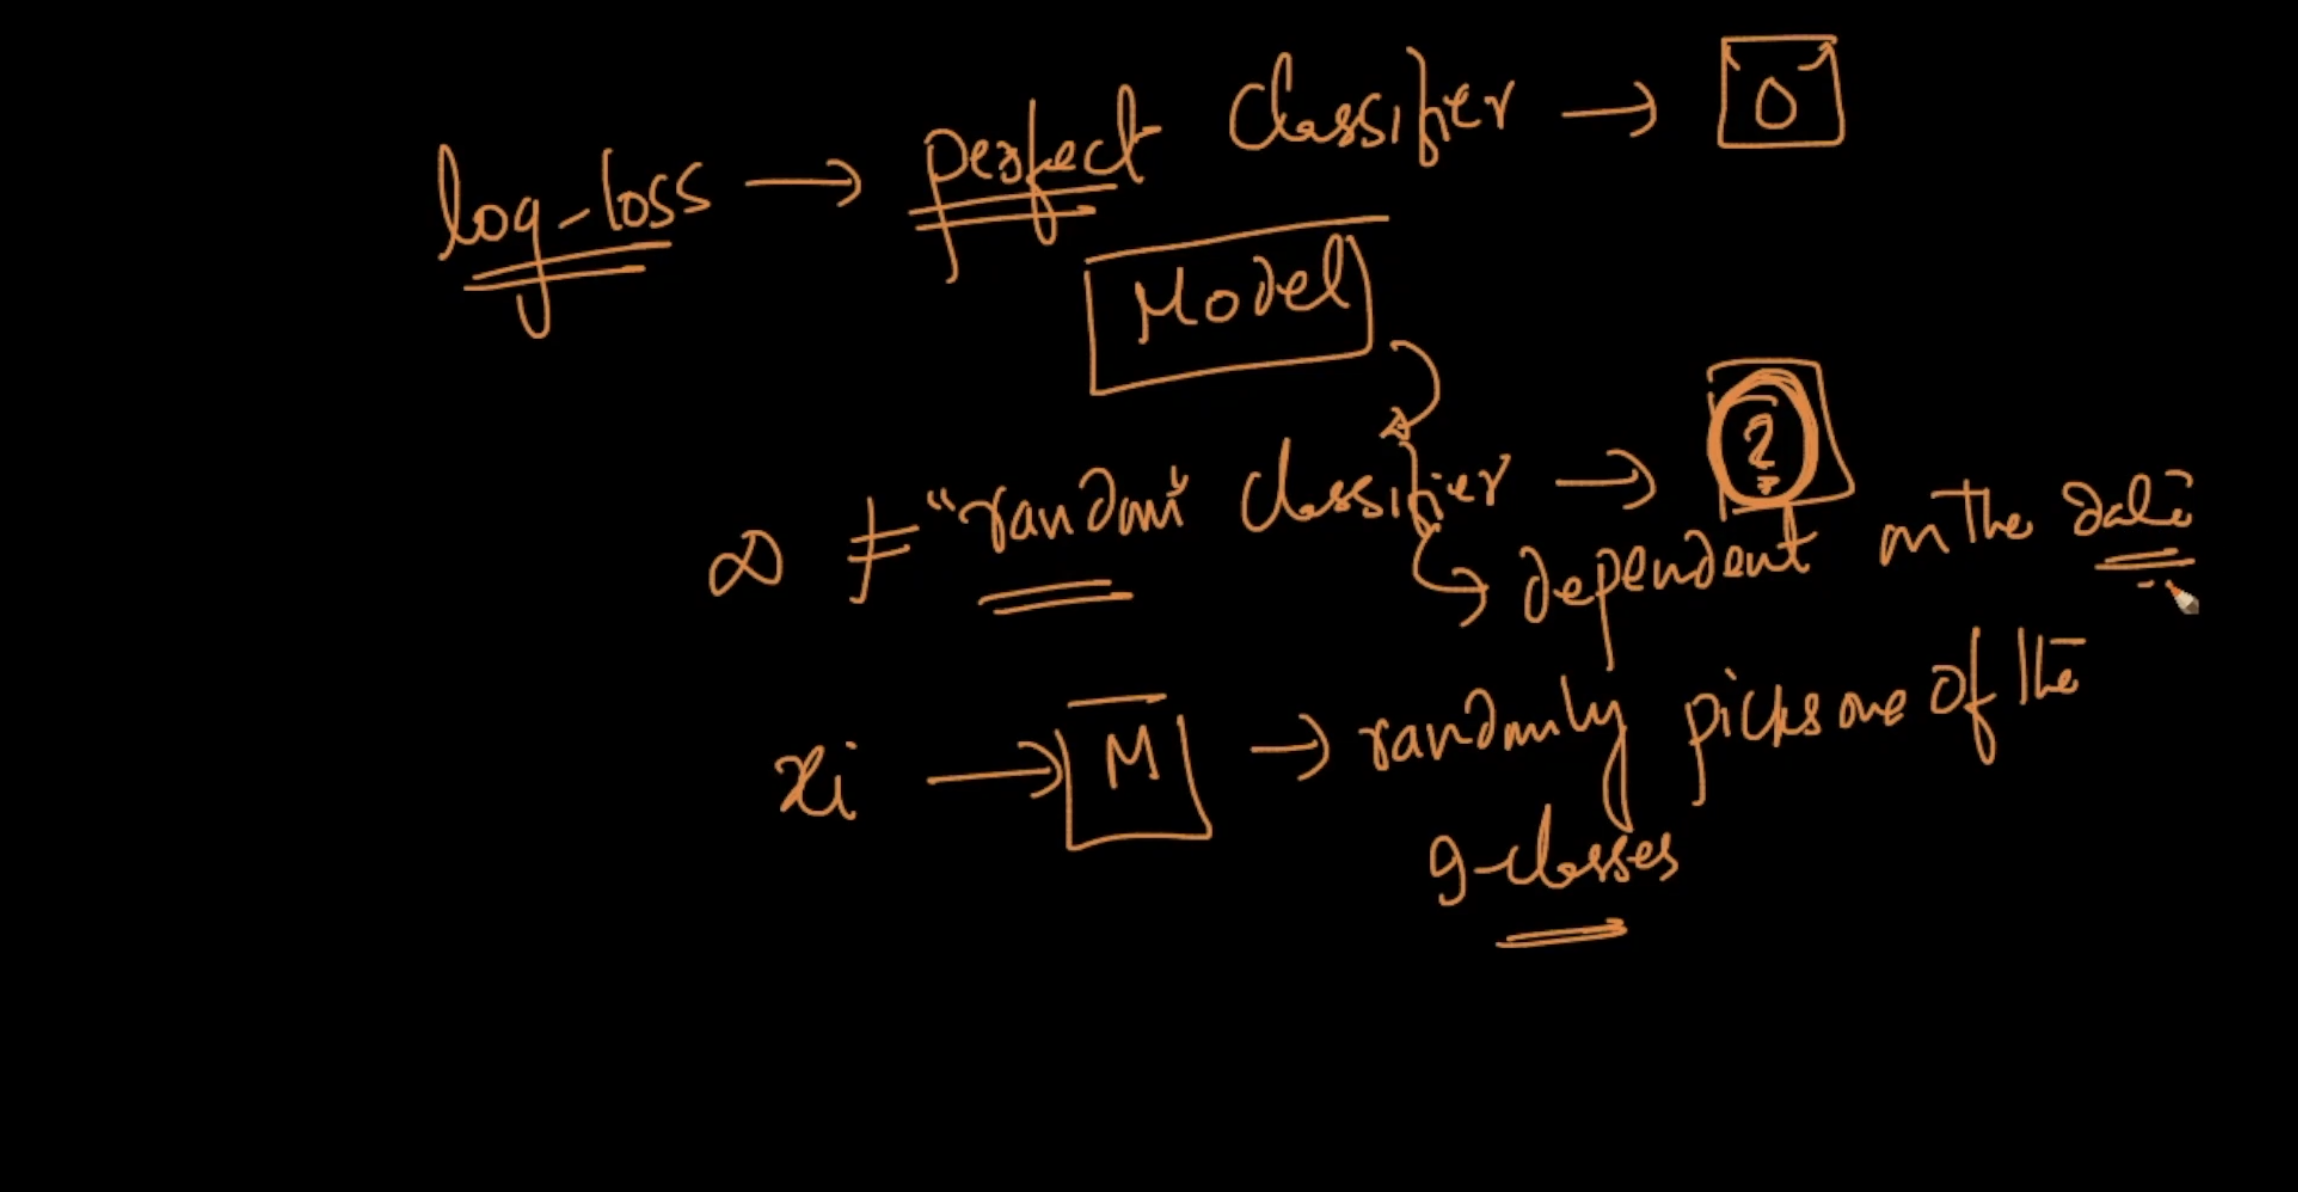 log-loss → perfect classifier → 0
Model
∞ ≠ "random" classifier → ?
↳ dependent on the data
xi → M → randomly picks one of the
9-classes